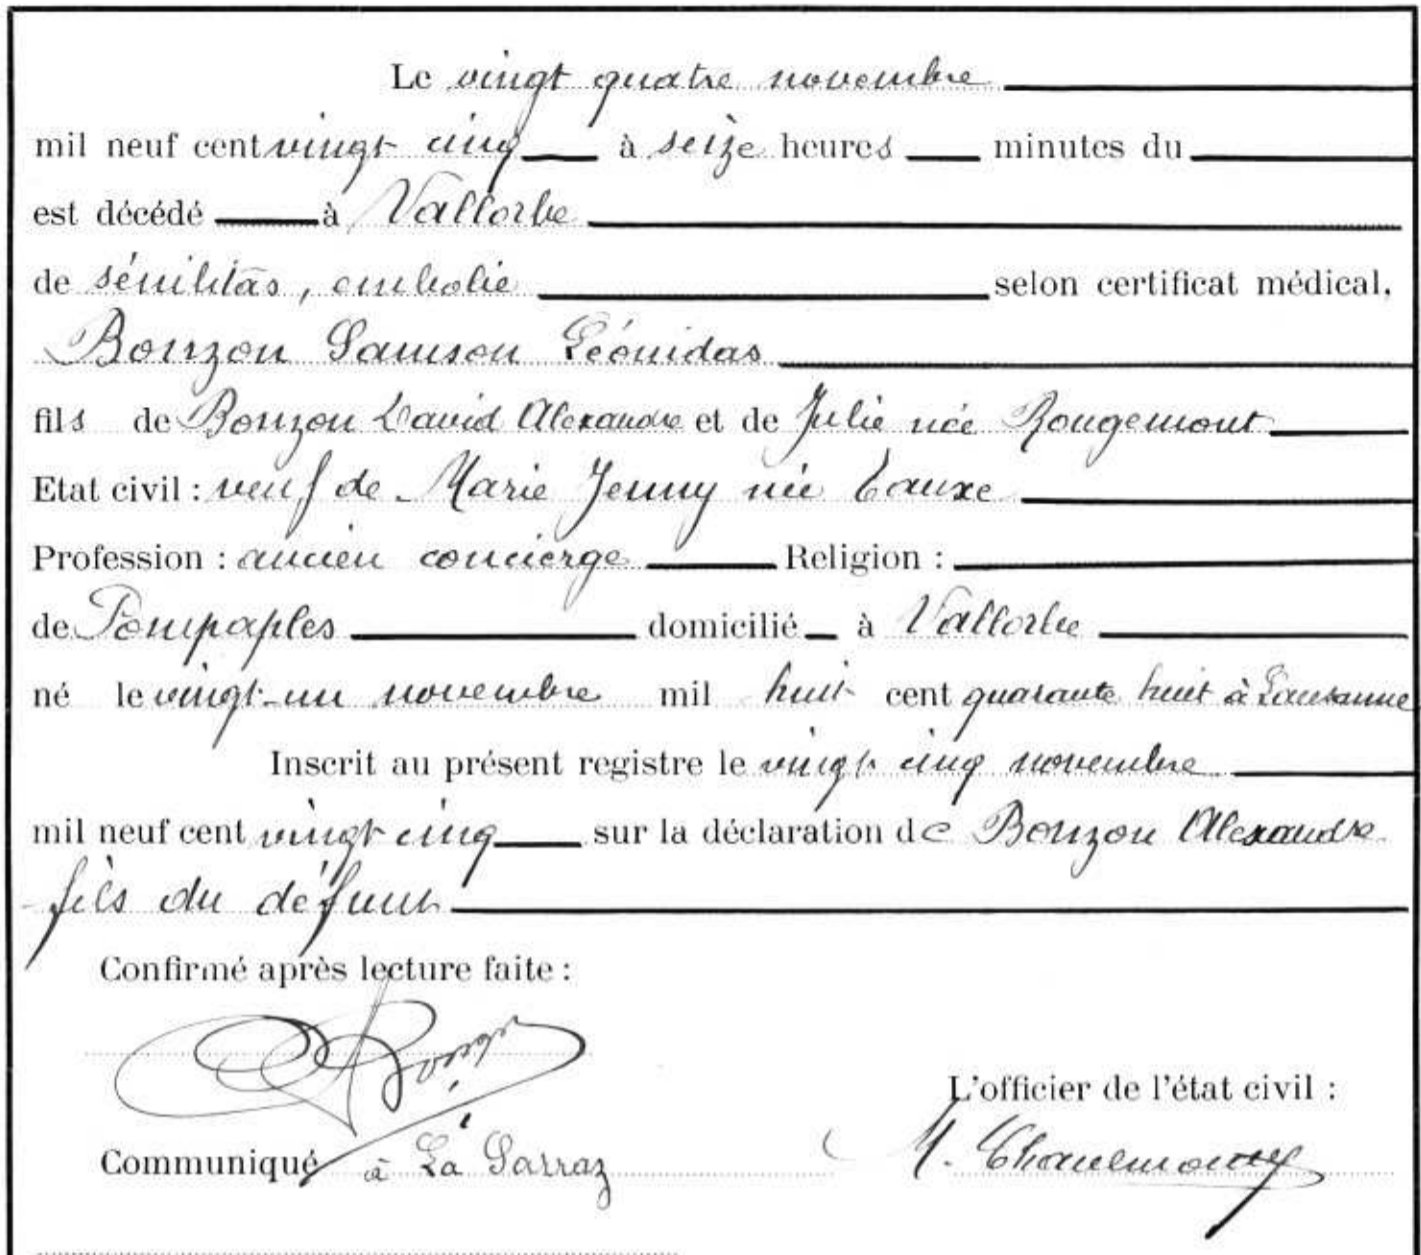 Le vingt quatre novembre
mil neuf cent vingt cinq à seize heures minutes du
est décédé à Vallorbe
de sénilitas, embolie selon certificat médical,
Bonzon Samson Léonidas
fils de Bonzon David Alexandre et de Julie née Rougemont
Etat civil : veuf de Marie Jenny née Tauxe
Profession : ancien concierge Religion :
de Pompaples domicilié à Vallorbe
né le vingt-un novembre mil huit cent quarante huit à Lausanne
Inscrit au présent registre le vingt cinq novembre
mil neuf cent vingt cinq sur la déclaration de Bonzon Alexandre
fils du défunt
Confirmé après lecture faite :
L'officier de l'état civil :
Communiqué à La Sarraz